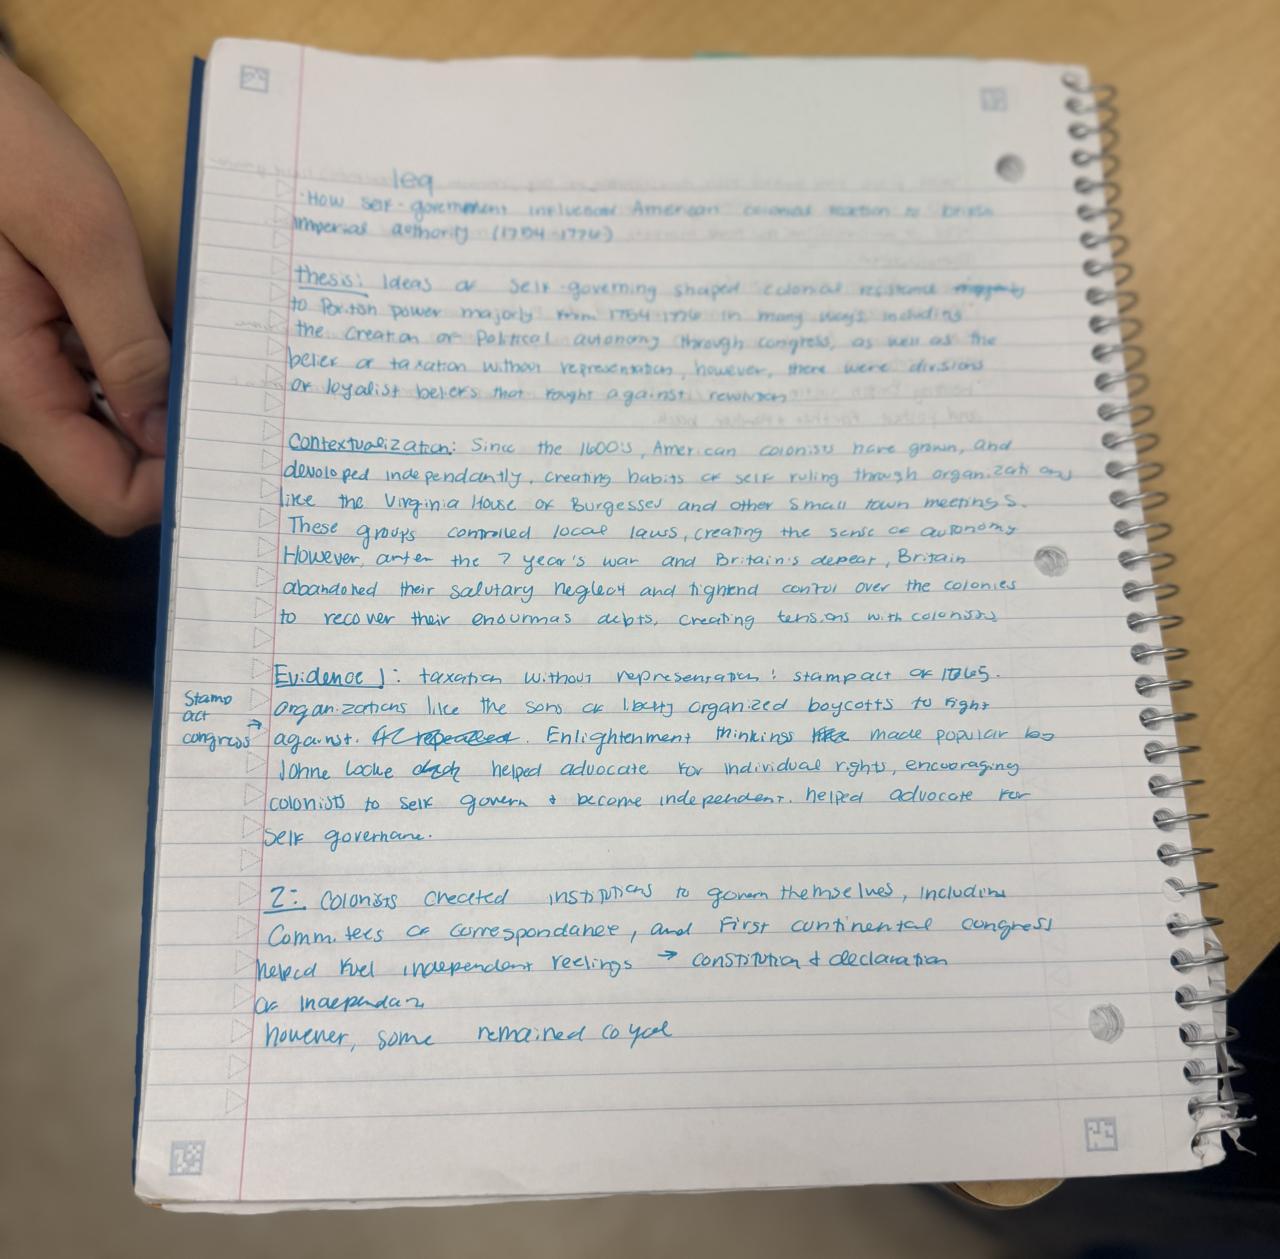 leq
· How self-government influenced American colonial reaction to british
imperial authority (1754-1776)
thesis: Ideas of self-governing shaped colonial resistance
to British power majorly from 1754-1776 in many ways including
the creation of Political autonomy through congress, as well as the
belief of taxation without representation, however, there were divisions
of loyalist beliefs that fought against revolution
Contextualization: Since the 1600's, American colonists have grown, and
devoloped independantly, creating habits of self ruling through organizations
like the Virginia House of Burgesses and other small town meetings.
These groups controlled local laws, creating the sense of autonomy
However, after the 7 year's war and Britain's defeat, Britain
abandoned their salutary neglect and tightend control over the colonies
to recover their enourmas debts, creating tensions with colonists
Evidence 1: taxation without representation: stamp act of 1765.
Stamp act congress →
organizations like the sons of liberty organized boycotts to fight
against. Enlightenment thinkings made popular by
Johne Locke helped advocate for individual rights, encouraging
colonists to self govern + become independent. helped advocate for
self governane.
2: Colonists created institutions to govern themselves, including
Committees of correspondance, and First continental congress
helped fuel independent feelings → constitution + declaration
of independan
however, some remained loyal